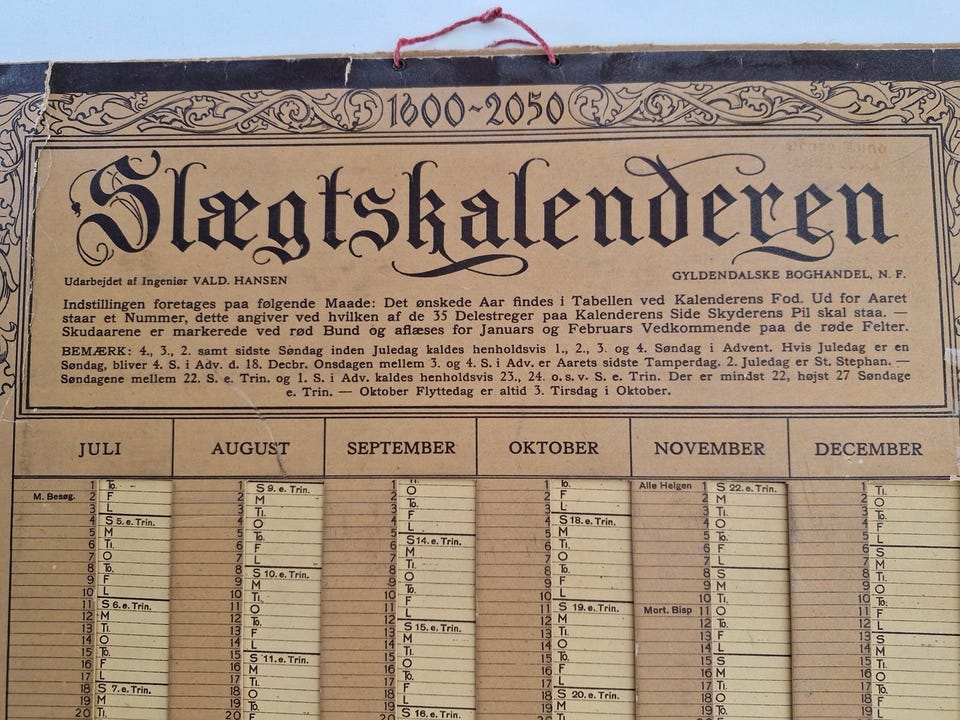 1600~2050
Slægtskalenderen
Udarbejdet af Ingeniør VALD. HANSEN
GYLDENDALSKE BOGHANDEL, N. F.
Indstillingen foretages paa følgende Maade: Det ønskede Aar findes i Tabellen ved Kalenderens Fod. Ud for Aaret
staar et Nummer, dette angiver ved hvilken af de 35 Delestreger paa Kalenderens Side Skyderens Pil skal staa. —
Skudaarene er markerede ved rød Bund og aflæses for Januars og Februars Vedkommende paa de røde Felter.
BEMÆRK: 4., 3., 2. samt sidste Søndag inden Juledag kaldes henholdsvis 1., 2., 3. og 4. Søndag i Advent. Hvis Juledag er en
Søndag, bliver 4. S. i Adv. d. 18. Decbr. Onsdagen mellem 3. og 4. S. i Adv. er Aarets sidste Tamperdag. 2. Juledag er St. Stephan. —
Søndagene mellem 22. S. e. Trin. og 1. S. i Adv. kaldes henholdsvis 23., 24. o. s. v. S. e. Trin. Der er mindst 22, højst 27 Søndage
e. Trin. — Oktober Flyttedag er altid 3. Tirsdag i Oktober.
JULI
1 To.
M. Besøg. 2 F
3 L
4 S 5. e. Trin.
5 M
6 Ti.
7 O
8 To.
9 F
10 L
11 S 6. e. Trin.
12 M
13 Ti.
14 O
15 To.
16 F
17 L
18 S 7. e. Trin.
19 M
20 Ti.
AUGUST
1 S 9. e. Trin.
2 M
3 Ti.
4 O
5 To.
6 F
7 L
8 S 10. e. Trin.
9 M
10 Ti.
11 O
12 To.
13 F
14 L
15 S 11. e. Trin.
16 M
17 Ti.
18 O
19 To.
20 F
SEPTEMBER
1 O
2 To.
3 F
4 L
5 S 14. e. Trin.
6 M
7 Ti.
8 O
9 To.
10 F
11 L
12 S 15. e. Trin.
13 M
14 Ti.
15 O
16 To.
17 F
18 L
19 S 16. e. Trin.
OKTOBER
1 To.
2 F
3 L
4 S 18. e. Trin.
5 M
6 Ti.
7 O
8 To.
9 F
10 L
11 S 19. e. Trin.
12 M
13 Ti.
14 O
15 To.
16 F
17 L
18 S 20. e. Trin.
19 M
20 Ti.
NOVEMBER
Alle Helgen 1 S 22. e. Trin.
2 M
3 Ti.
4 O
5 To.
6 F
7 L
8 S
9 M
10 Ti.
Mort. Bisp 11 O
12 To.
13 F
14 L
15 S
16 M
17 Ti.
18 O
19 To.
20 F
DECEMBER
1 Ti.
2 O
3 To.
4 F
5 L
6 S
7 M
8 Ti.
9 O
10 To.
11 F
12 L
13 S
14 M
15 Ti.
16 O
17 To.
18 F
19 L